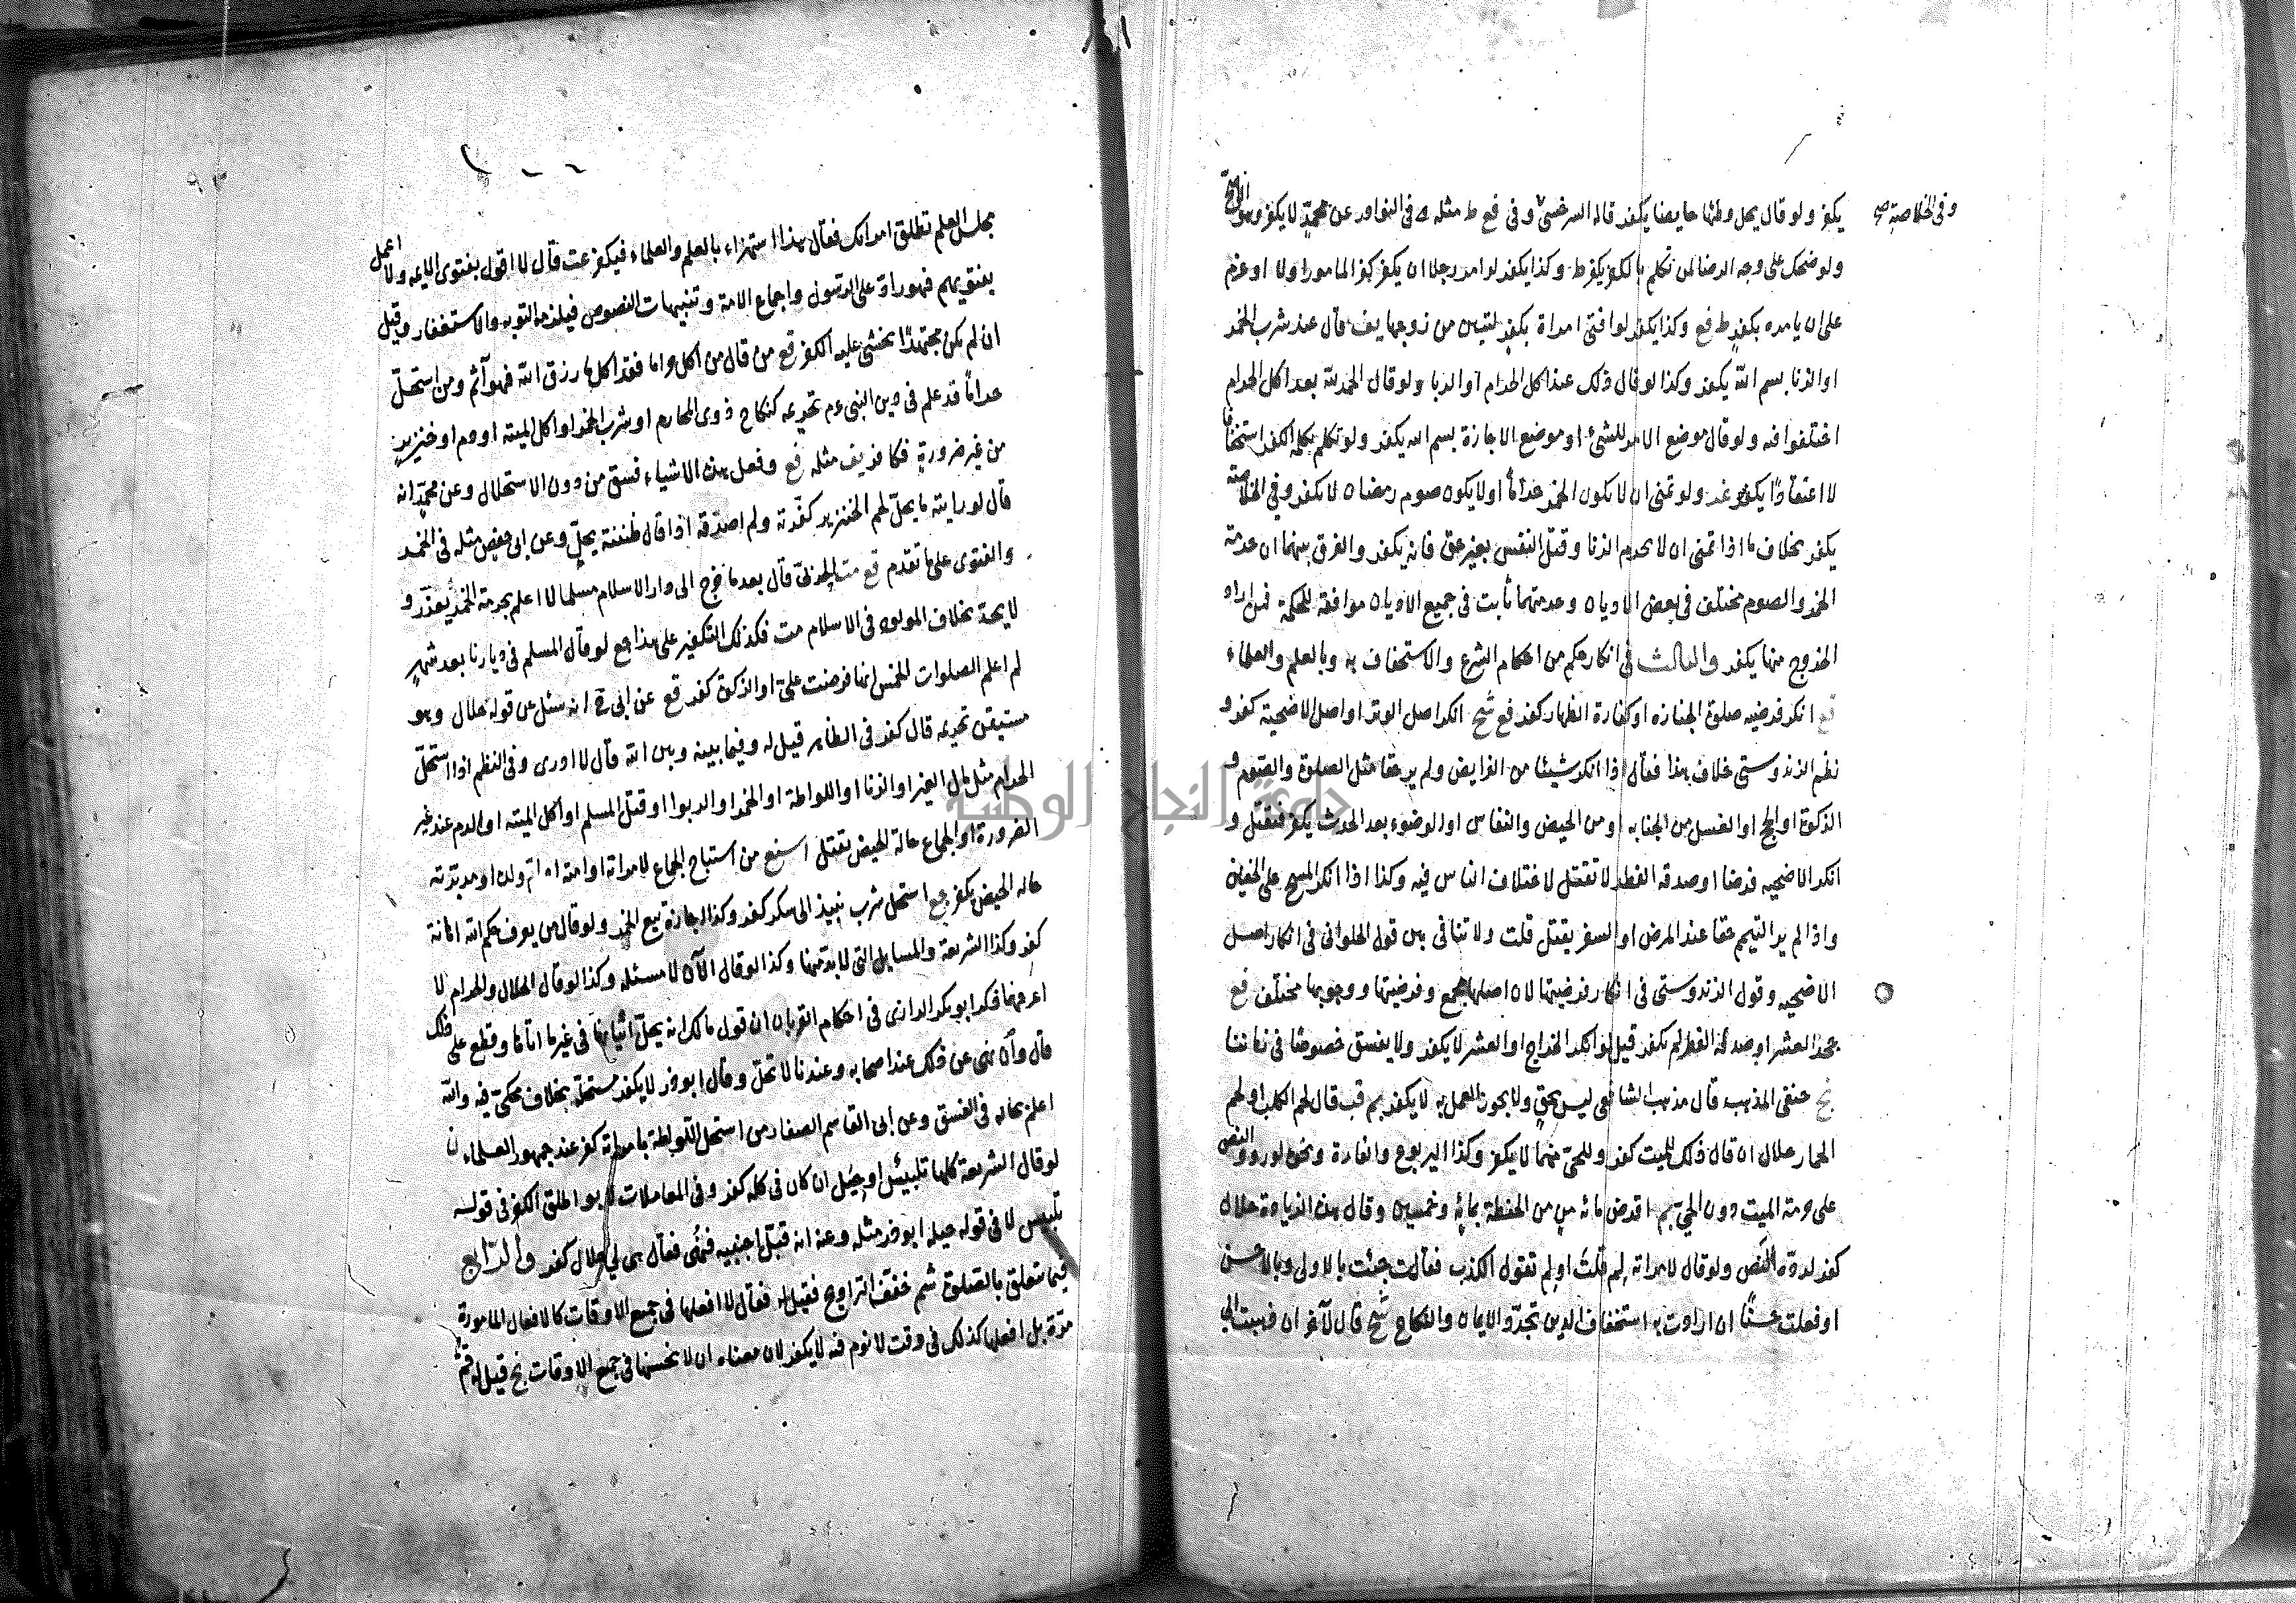 يكفر ولو قال يحل وطئها حايضا يكفر قاله السرخسي وفي قع ط مثله و في النوادر عن محمد لا يكفر وهو الصح
وفي الخلاصة صح
ولو ضحك على وجه الرضا لمن تكلم بالكفر يكفر ط وكذا يكفر لو امر رجلا ان يكفر كفر المامور اولا او عزم
على ان يامره بكفر ط قع وكذا يكفر لو افتى امراة بكفر لتبين من زوجها يف قال عند شرب الخمر
او الزنا بسم الله يكفر وكذا لو قال ذلك عند اكل الحرام او الربا ولو قال الحمد لله بعد اكل الحرام
اختلفوا فيه ولو قال موضع الامر للشئ او موضع الاجازة بسم الله يكفر ولو تكلم بكلمة الكفر استخفافا
لا اعتقادا يكفر ولو تمنى ان لا يكون الخمر حراما اولا يكون صوم رمضان لا يكفر وفي الخلاصة
يكفر بخلاف ما اذا تمنى ان لا يحرم الزنا وقتل النفس بغير حق فانه يكفر والفرق بينهما ان حرمة
الخمر والصوم مختلف في بعض الاديان وحرمتهما ثابت في جميع الاديان موافقة للحكمة فمن اراد
الخروج منها يكفر والثالث في انكار حكم من احكام الشرع والاستخفاف به وبالعلم والعلماء
قع انكر فرضيه صلوة الجنازه او كفارة الظهار كفر قع شح انكر اصل الوتر او اصل الاضحية كفر و
نظم الزندوستي خلاف هذا فقال اذا انكر شيئا من الفرايض ولم يره حقا مثل الصلوة والصوم و
الزكوة او الحج او الغسل من الجنابه او من الحيض والنفاس او الوضوء بعد الحدث يكفر فيقتل و
انكر الاضحيه فرضا او صدقه الفطر لا تقتل لاختلاف الناس فيه وكذا اذا انكر المسح على الخفين
واذا لم ير التيمم حقا عند المرض او السفر يقتل قلت ولا تنافي بين قول الحلواني في انكار اصل
الاضحيه وقول الزندوستي في انكار فرضيتها لان اصلها مجمع وفرضيتها ووجوبها مختلف قع
جحد العشر او صدقة الفطر لم يكفر قيل لو انكر الخراج او العشر لا يكفر ولا يفسق خصوصا في زماننا
نج حنفي المذهب قال مذهب الشافعي ليس بحق ولا يجوز العمل به لا يكفر بم قب قال لحم الكلب او لحم
الحمار حلال ان قال ذلك للميت كفر وللحي منهما لا يكفر وكذا اليربوع والفارة ونحوه لورود النص
على حرمة الميت دون الحي بم اقرض مائه من من الحنطة بمائة وخمسين وقال هذه الزيادة حلال
كفر لردة النص ولو قال لامراته لم قلت او لم تقول الكذب فقالت جئت بالاولى وبالاحسن
او فعلت حسنا ان ارادت به استخفاف الدين تجدد الايمان والنكاح شح قال لآخر ان ذهبت الى
مجلس العلم تطلق امراتك فقال هذا استهزاء بالعلم والعلماء فيكفر عت قال لا اقول بفتوى الايمه ولا اعمل
بفتويهم فهو راد على الرسول واجماع الامة وتنبيهات النصوص فيلزمه التوبه والاستغفار وقيل
ان لم يكن مجتهدا يخشى عليه الكفر قع من قال من اكل حراما فقد اكل ما رزق الله فهو آثم ومن استحل
حراما قد علم في دين النبي عم تحريمه كنكاح ذوي المحارم او شرب الخمر او اكل الميته او دم او خنزير
من غير ضرورة فكافر يف مثله قع وفعل هذه الاشياء فسق من دون الاستحلال وعن محمد انه
قال لو رايته ما يحل لحم الخنزير كفرته ولم اصدقه اذا قال ظننته يحل وعن ابي حفص مثله في الخمر
والفتوى على ما تقدم قع مت الحربي قال بعد ما خرج الى دار الاسلام مسلما لا اعلم بحرمة الخمر يعذر و
لا يحد بخلاف المولود في الاسلام مت فكذلك التكفير على هذا جع لو قال المسلم في ديارنا بعد شهر
لم اعلم الصلوات الخمس انها فرضت علي او الزكوة كفر قع عن ابي ح انه سئل عن قوله حلال وهو
مستيقن تحريمه قال كفر في الظاهر قيل له وفيما بينه وبين الله قال لا ادري وفي النظم اذا استحل
الحرام مثل مال الغير او الزنا او اللواطة او الخمر او الربوا او قتل المسلم او اكل الميته او الدم عند غير
الضرورة او الجماع حالة الحيض يقتل من استباح الجماع لامراته او امته او ام ولده او مدبرته
حاله الحيض يكفر جع استحل شرب نبيذ الى سكر كفر وكذا اجازة بيع الخمر ولو قال من يعرف حكم الله
كفر وكذا الشريعة والمسايل التي لابد منها وكذا لو قال الآن لا مسئله وكذا لو قال الحلال والحرام لا
اعرفهما ذكر ابو بكر الرازي في احكام القرآن ان قول مالك انه يحل في غيرها وقطع على ذلك
قال وآن نهى عن ذلك عند اصحابه وعندنا لا تحل وقال ابو ذر لا يكفر مستحله بخلاف محكي فيه والله
اعلم بحاله في الفسق وعن ابي القاسم الصفار من استحل اللواطة بامراته كفر عند جمهور العلماء ن
لو قال الشريعة كلها تلبيس او حيل ان كان في كله كفر وفي المعاملات لا بو اطلق الكفر في قوله
تلبيس لا في قوله حيله ابو ذر مثله وعنه انه قبل اجنبيه فنهي فقال هي لي حلال كفر والرابع
فيما يتعلق بالصلوة شم خفف التراويح فقيل له فقال لا افعلها في جميع الاوقات كالافعال المامورة
مرة بل افعلها كذلك في وقت لا نوم فيه لا يكفر لان معناه ان لا يحسنها في جميع الاوقات نج قيل له قم
جامعة النجاح الوطنية